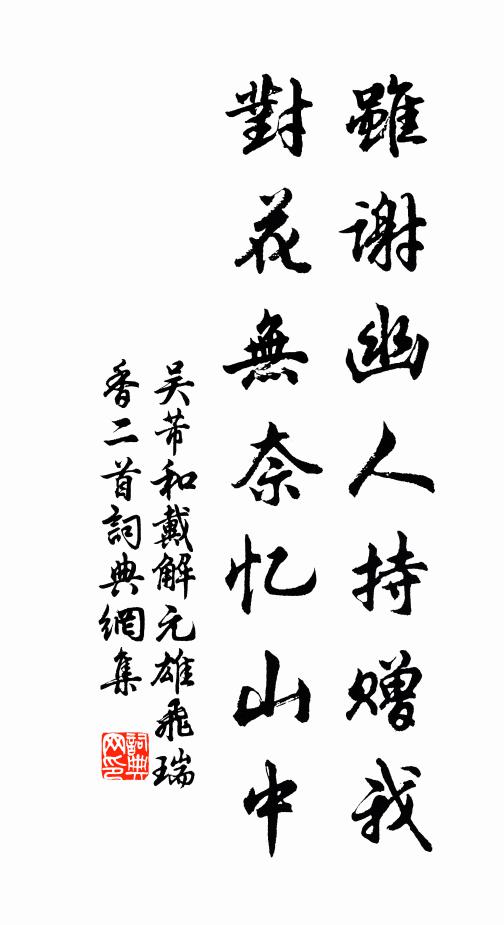 雖谢幽人持赠我
對花無奈忆山中
吴芾和戴解元雄飛瑞
香二首詞典網集
詞典
网印